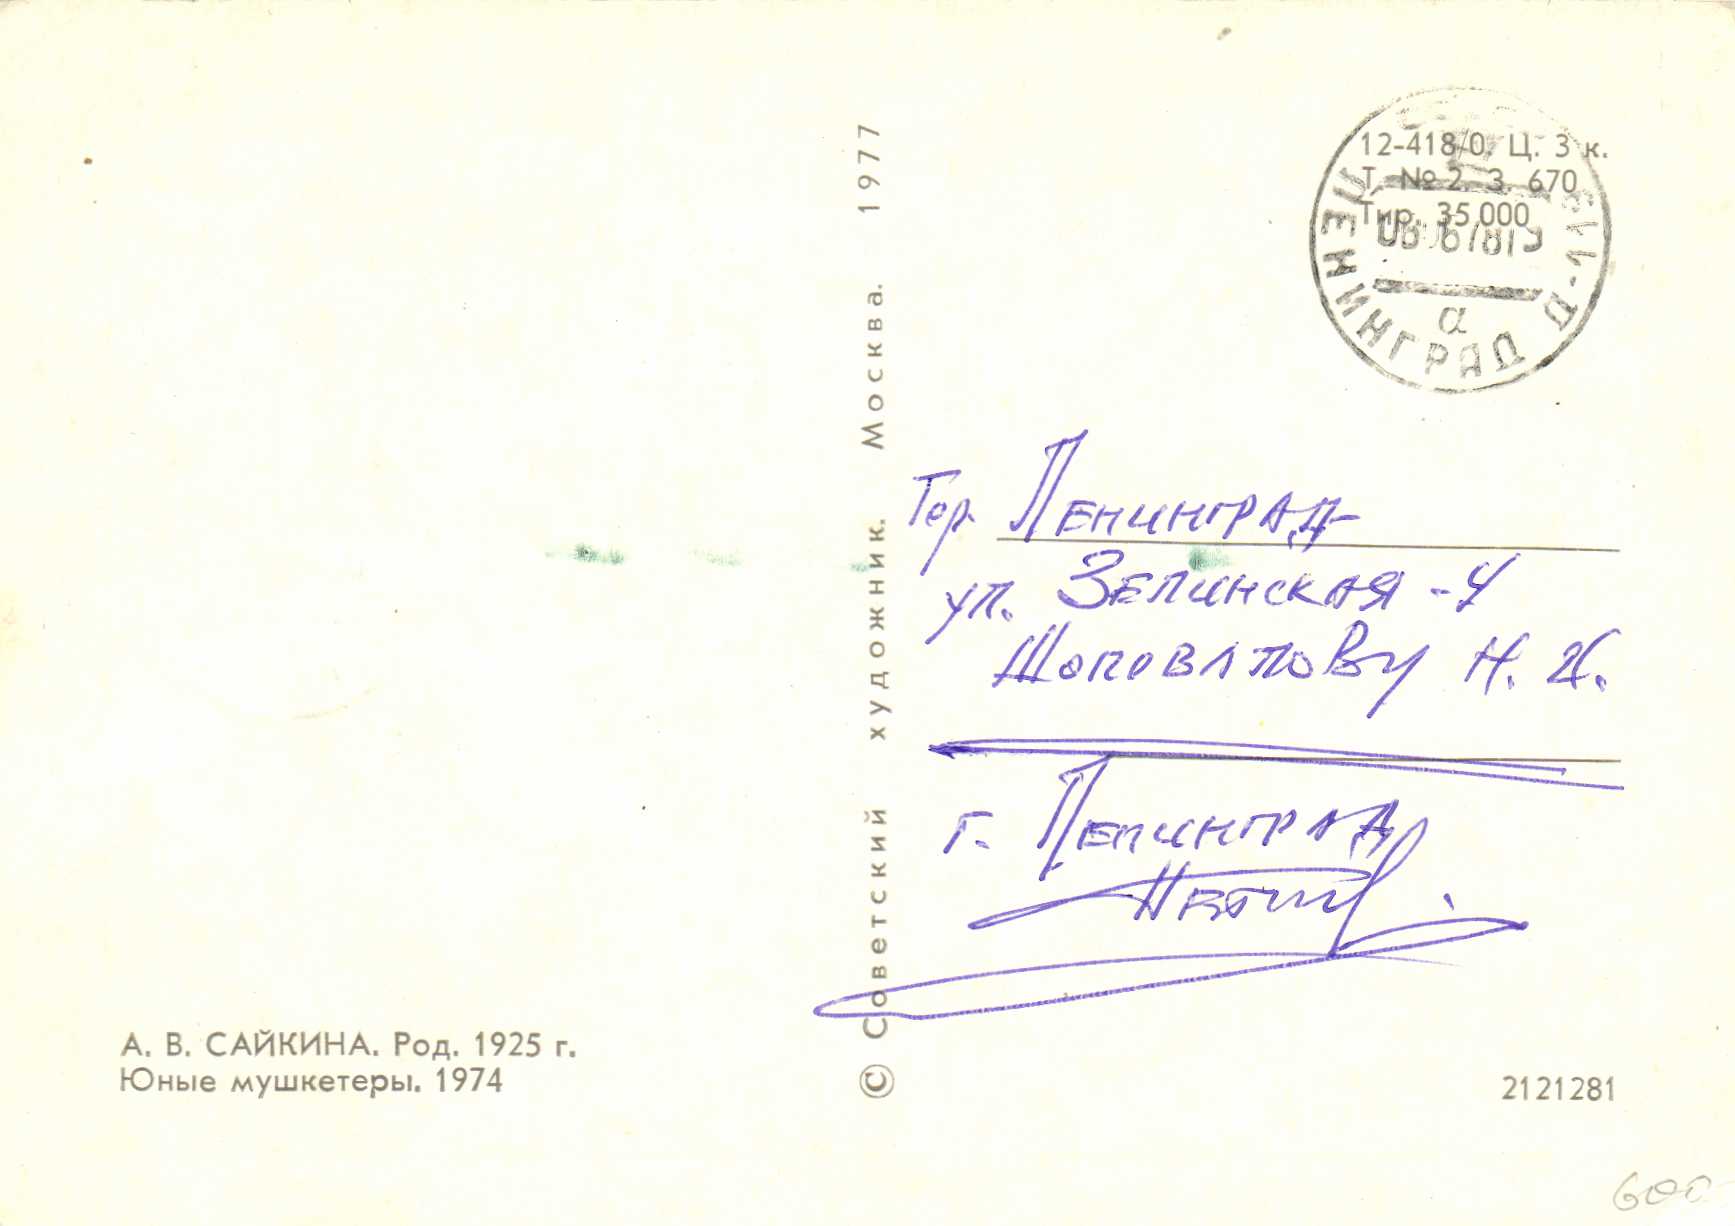 12-418/0. Ц. 3 к.
Т. № 2. 3. 670
Тир. 35.000
ЛЕНИНГРАД Д-
а
Гор. Ленинград
ул. Зелинская -4
Шоповалову Н. И.
г. Ленинград
© Советский художник. Москва. 1977
А. В. САЙКИНА. Род. 1925 г.
Юные мушкетеры. 1974
2121281
600